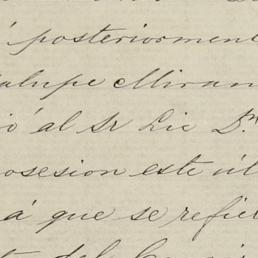 á posteriorment
alupe Miran
ó al Sr Lic D.
osesion este úl
á que se refie
t del